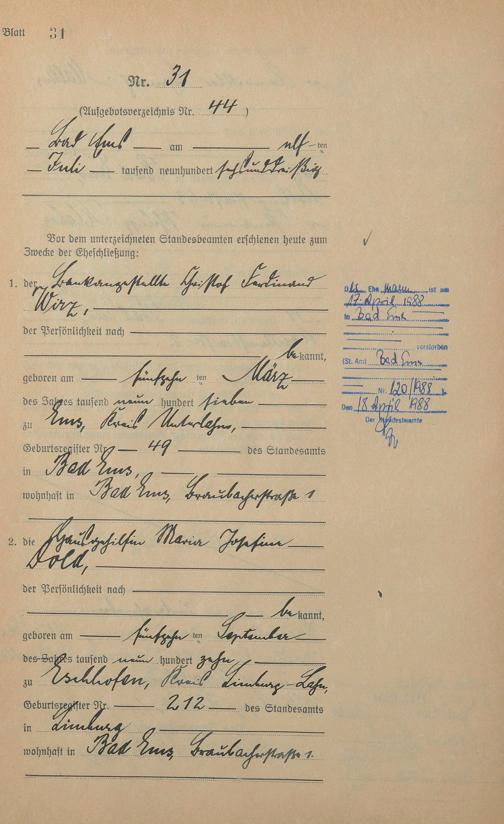 Blatt 31
Nr. 31
(Aufgebotsverzeichnis Nr. 44)
Bad Ems am elf ten
Juli tausend neunhundert sechsunddreißig
Vor dem unterzeichneten Standesbeamten erschienen heute zum
Zwecke der Eheschließung:
1. der Bankangestellte Christof Ferdinand
Wirz,
der Persönlichkeit nach
bekannt,
geboren am fünfzehn ten März
des Jahres tausend neun hundert sieben
zu Ems, Kreis Unterlahn,
Geburtsregister Nr. 49 des Standesamts
in Bad Ems,
wohnhaft in Bad Ems, Braubacherstraße 1
2. die Hausgehilfin Maria Josefine
Dold,
der Persönlichkeit nach
bekannt,
geboren am fünfzehn ten September
des Jahres tausend neun hundert zehn,
zu Eschhofen, Kreis Limburg-Lahn,
Geburtsregister Nr. 212 des Standesamts
in Limburg
wohnhaft in Bad Ems, Braubacherstraße 1.
Der Ehemann ist am
17. April 1988
in Bad Ems
verstorben
(St. Amt Bad Ems
Nr. 120/1988)
Den 18. April 1988
Der Standesbeamte